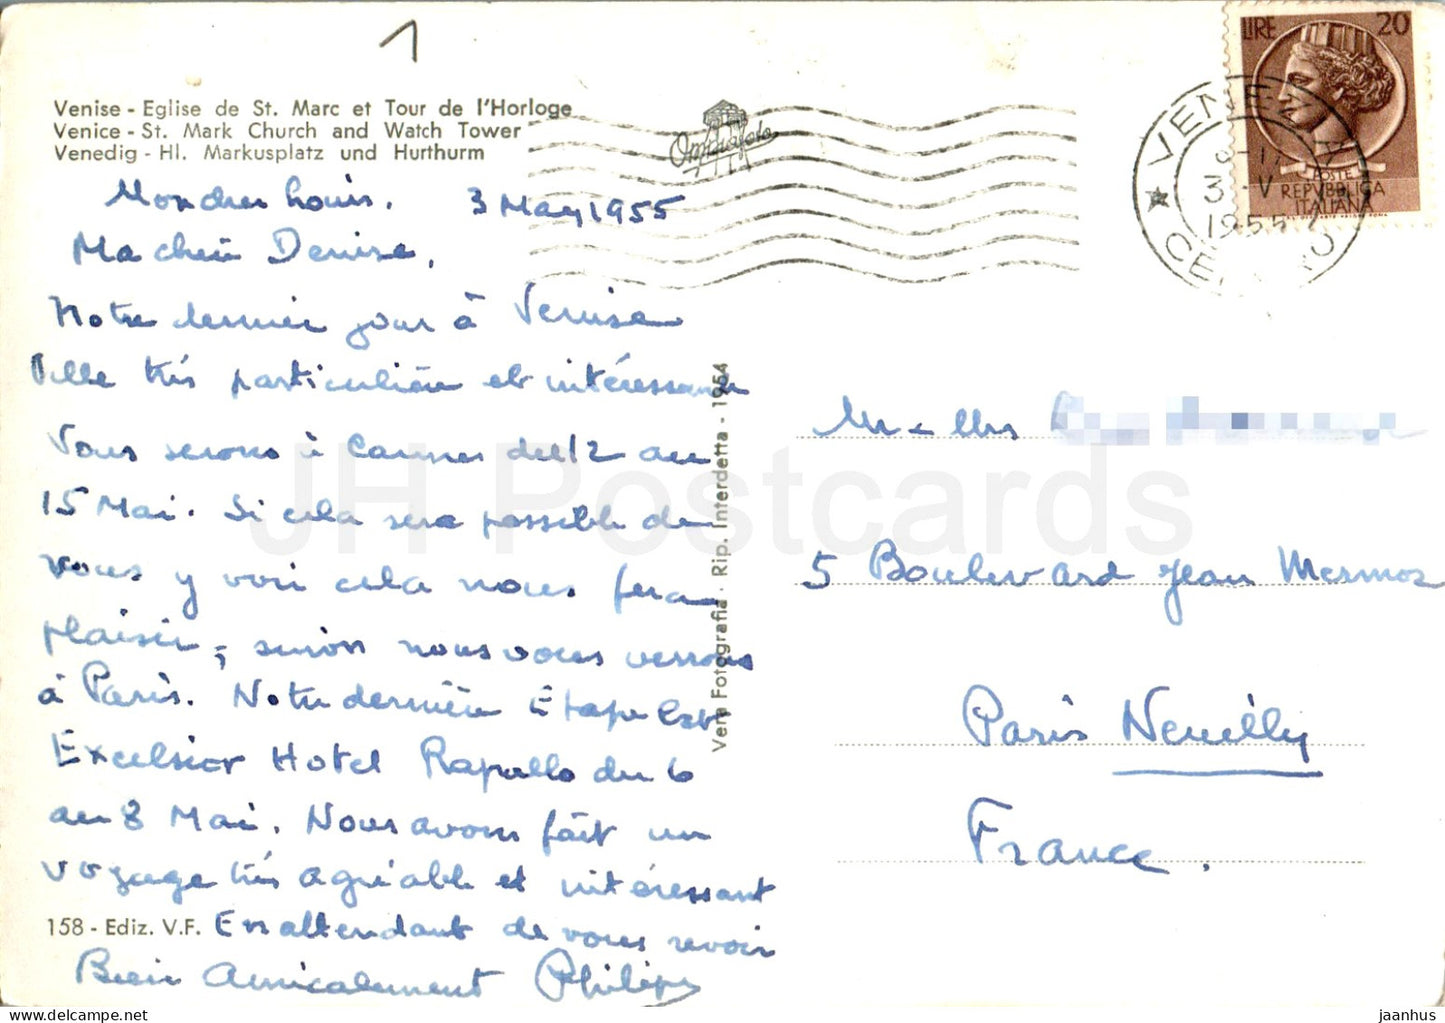 1
Venise - Eglise de St. Marc et Tour de l'Horloge
Venice - St. Mark Church and Watch Tower
Venedig - Hl. Markusplatz und Hurthurm
Omniafoto
LIRE 20
POSTE
REPVBBLICA
ITALIANA
VENEZIA
3 - V
1955
CENTRO
Mon cher Louis. 3 May 1955
Ma chère Denise,
Notre dernier jour à Venise
Ville très particulière et intéressante
Vous serons à Cannes du 12 au
15 Mai. Si cela sera possible de
vous y voir cela nous fera
plaisir, sinon nous vous verrons
à Paris. Notre dernière Etape est
Excelsior Hotel Rapallo du 6
au 8 Mai. Nous avons fait un
voyage très agréable et intéressant
158 - Ediz. V.F. En attendant de vous revoir
Bien Amicalement Philippe
Vera Fotografia - Rip. Interdetta - 1954
5 Boulevard Jean Mermoz
Paris Neuilly
France.
JH Postcards
jaanhus